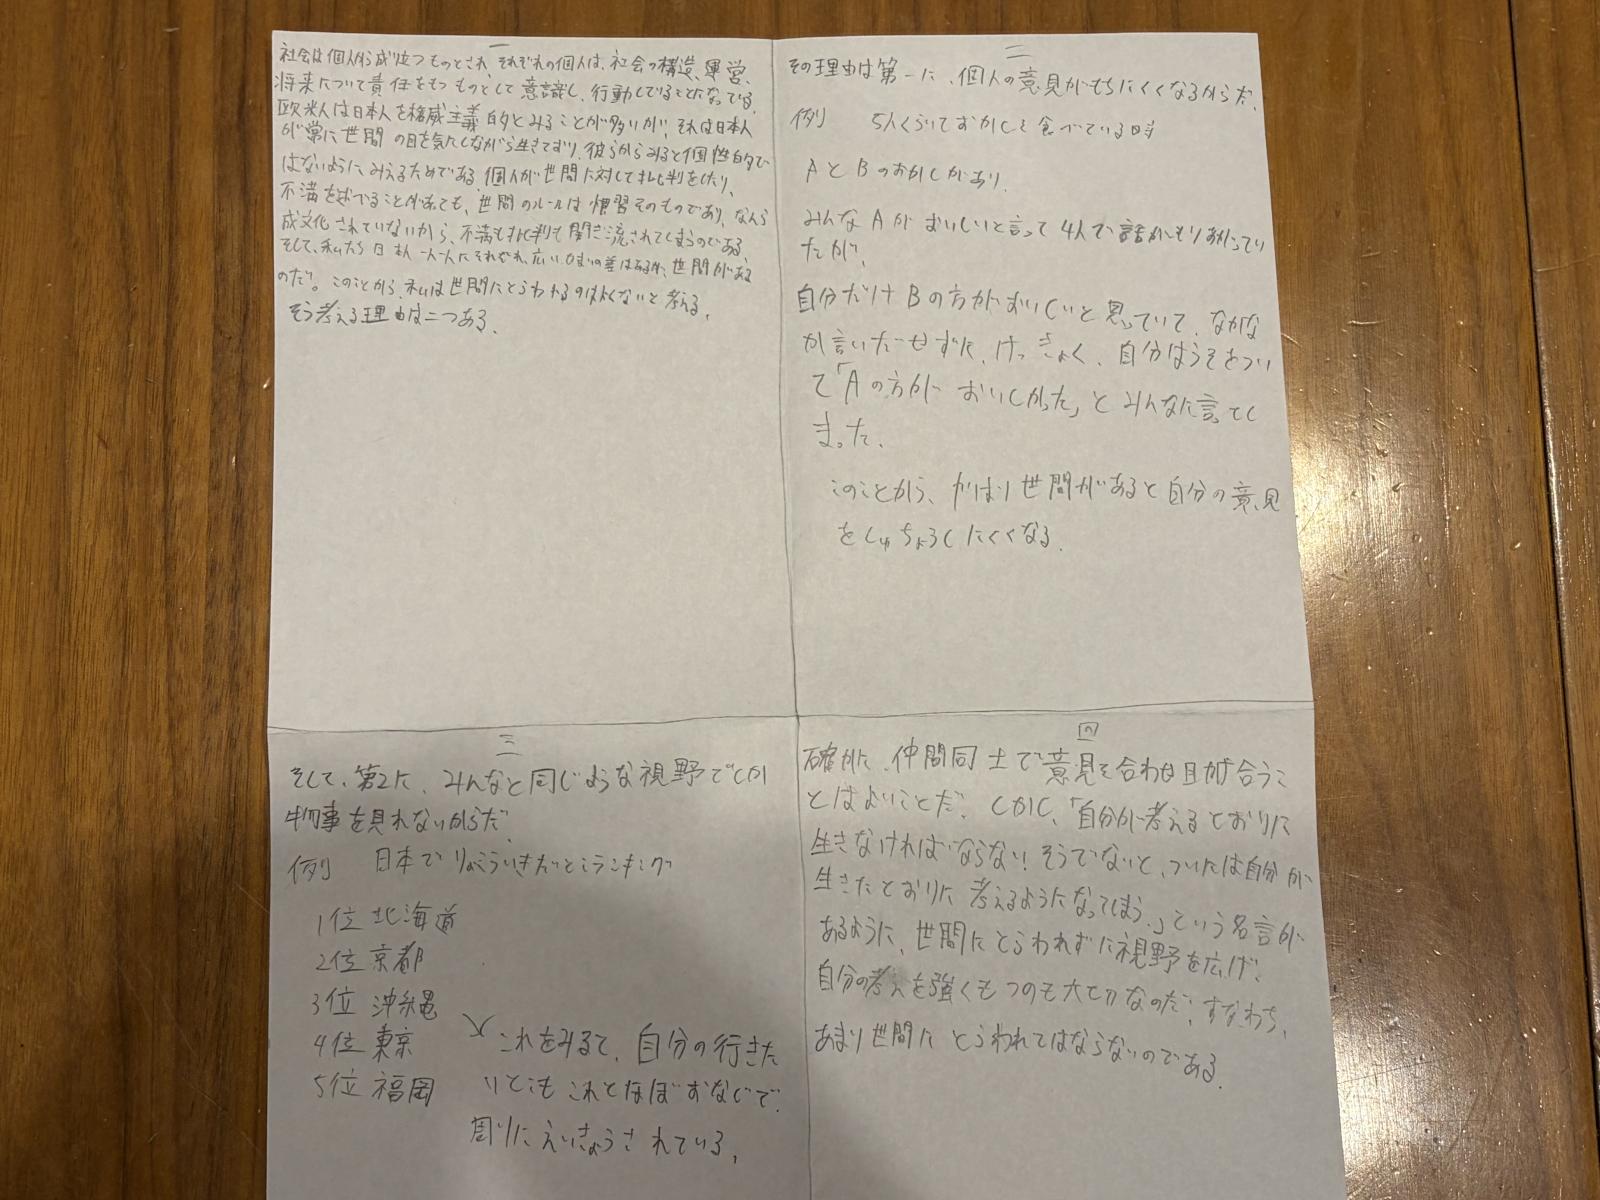 一
社会は個人から成り立つものとされ、それぞれの個人は、社会の構造、運営、
将来について責任をもつものとして意識し、行動していることになっている。
欧米人は日本人を権威主義的とみることが多いが、それは日本人
が常に世間の目を気にしながら生きており、彼らからみると個性的で
はないようにみえるためである。個人が世間に対して批判をしたり、
不満を述べることがあっても、世間のルールは慣習そのものであり、なんら
成文化されていないから、不満も批判も聞き流されてしまうのである。
そして、私たち日本人一人一人にそれぞれ、広いせまいの差はあるが、世間がある
のだ。このことから、私は世間にとらわれるのはよくないと考える。
そう考える理由は二つある。
二
その理由は第一に、個人の意見がもちにくくなるからだ。
例 5人くらいでおかしを食べている時
AとBのおかしがあり、
みんなAがおいしいと言って4人で話がもりあがってい
たが、
自分だけBの方がおいしいと思っていて、なかな
か言いだせずに、けっきょく、自分はうそをつい
て「Aの方がおいしかった」とみんなに言ってし
まった。
このことから、やはり世間があると自分の意見
をしゅちょうしにくくなる。
三
そして、第2に、みんなと同じような視野でしか
物事を見れないからだ。
例 日本でりょこういきたいところランキング
1位 北海道
2位 京都
3位 沖縄
4位 東京
5位 福岡
これをみるて、自分の行きた
いとこもこれとほぼおなじで、
周りにえいきょうされている。
四
確かに、仲間同士で意見を合わせ助け合うこ
とはよいことだ。しかし、「自分が考えるとおりに
生きなければならない！そうでないと、ついには自分が
生きたとおりに考えるようになってしまう。」という名言が
あるように、世間にとらわれずに視野を広げ、
自分の考えを強くもつのも大切なのだ。すなわち、
あまり世間にとらわれてはならないのである。